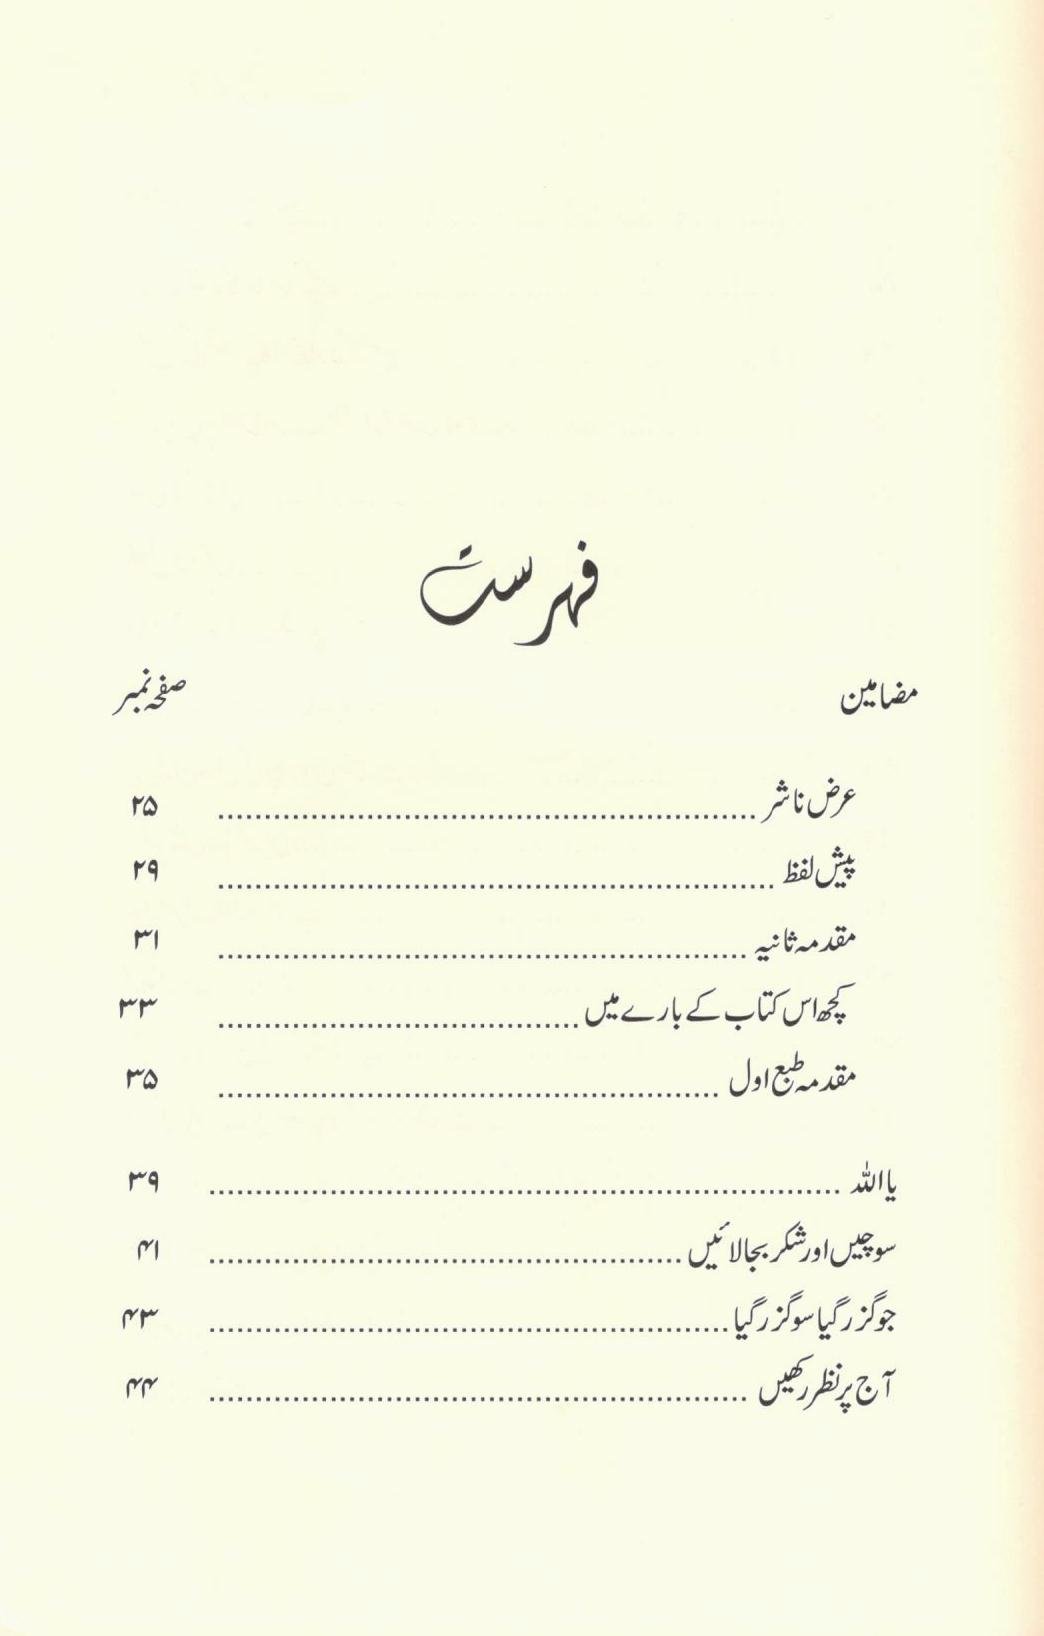 فہرست
مضامین صفحہ نمبر
عرض ناشر ........................................ ۲۵
پیش لفظ ........................................ ۲۹
مقدمہ ثانیہ ........................................ ۳۱
کچھ اس کتاب کے بارے میں ........................................ ۳۳
مقدمہ طبع اول ........................................ ۳۵
یا اللہ ........................................ ۳۹
سوچیں اور شکر بجا لائیں ........................................ ۴۱
جو گزر گیا سو گزر گیا ........................................ ۴۳
آج پر نظر رکھیں ........................................ ۴۴